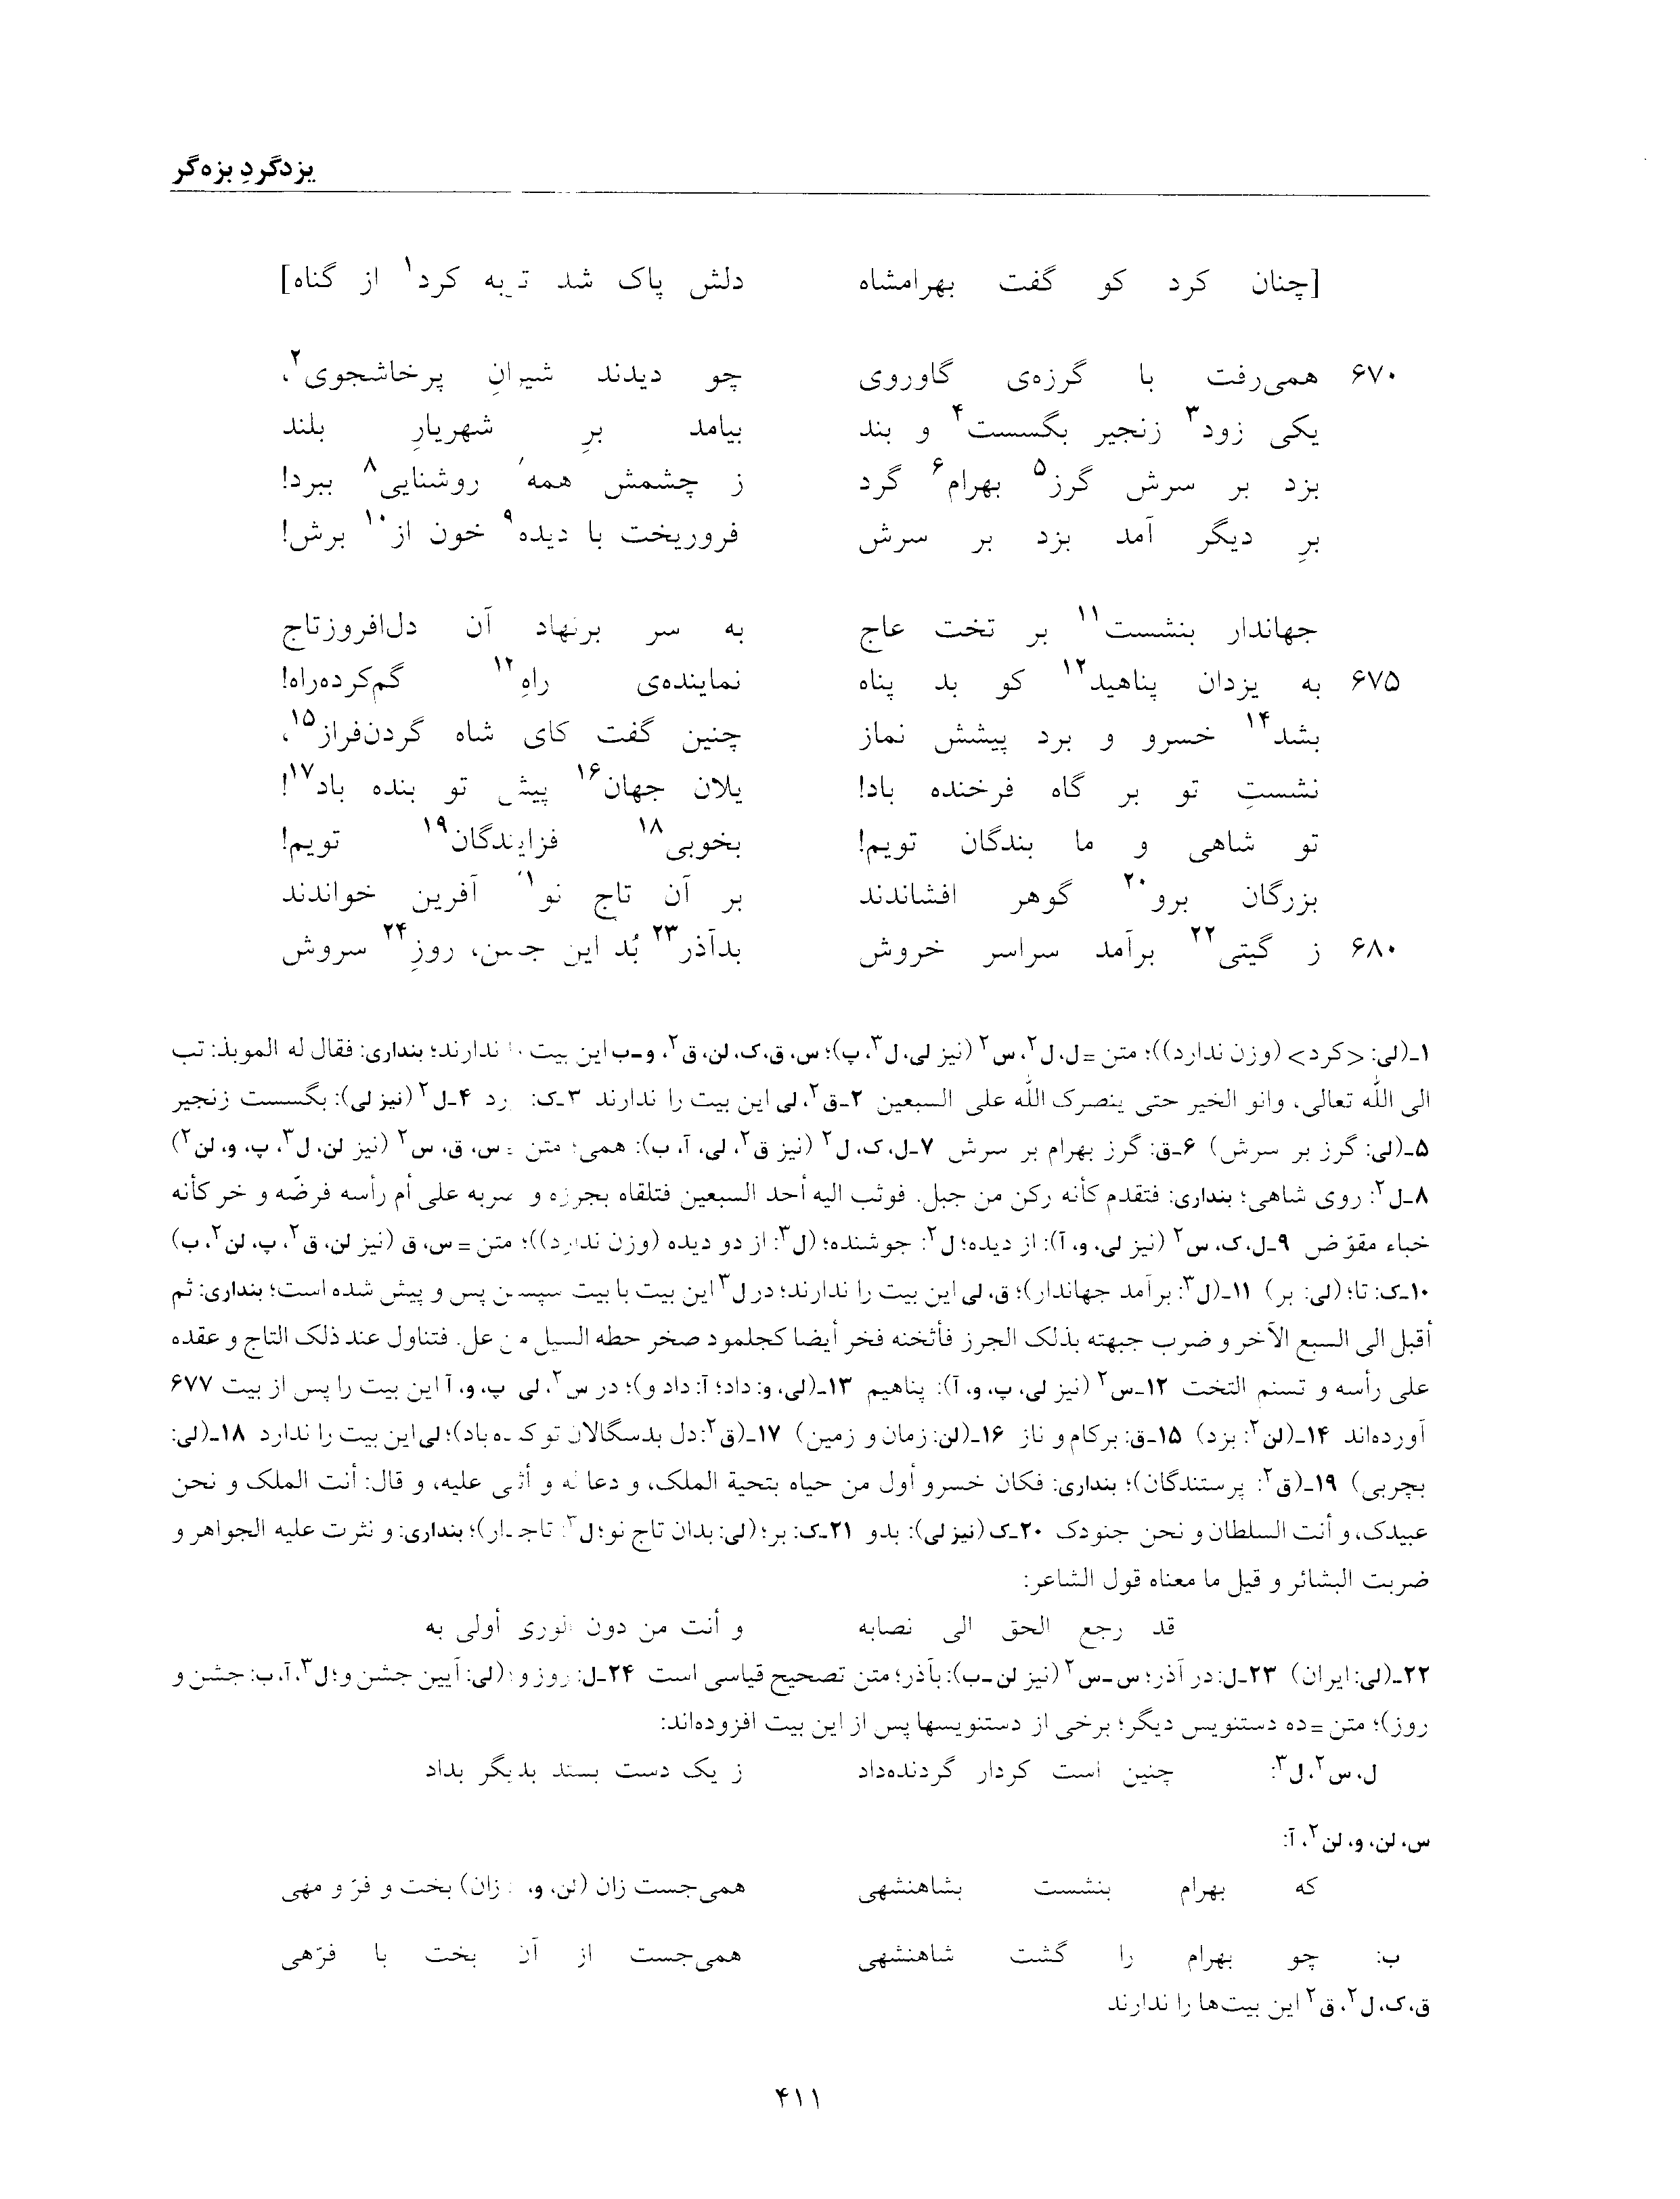 یزدگردِ بزه‌گر
[چنان کرد کو گفت بهرامشاه دلش پاک شد توبه کرد۱ از گناه]
۶۷۰ همی‌رفت با گرزه‌ی گاوروی چو دیدند شیرانِ پرخاشجوی۲،
یکی زود۳ زنجیر بگسست۴ و بند بیامد برِ شهریارِ بلند
بزد بر سرش گرز۵ بهرام۶ گرد ز چشمش همه روشنایی۸ ببرد!
برِ دیگر آمد بزد بر سرش فروریخت با دیده۹ خون از۱۰ برش!
جهاندار بنشست۱۱ بر تخت عاج به سر برنهاد آن دل‌افروزتاج
۶۷۵ به یزدان پناهید۱۲ کو بد پناه نماینده‌ی راهِ۱۳ گم‌کرده‌راه!
بشد۱۴ خسرو و برد پیشش نماز چنین گفت کای شاه گردن‌فراز۱۵،
نشستِ تو بر گاه فرخنده باد! یلان جهان۱۶ پیش تو بنده باد۱۷!
تو شاهی و ما بندگان تویم! بخوبی۱۸ فزایندگان۱۹ تویم!
بزرگان برو۲۰ گوهر افشاندند بر آن تاج نو آفرین خواندند
۶۸۰ ز گیتی۲۲ برآمد سراسر خروش بدآذر۲۳ بُد این جشن، روزِ۲۴ سروش
۱ـ(لی: <کرد> (وزن ندارد))؛ متن =ل، ل۲، س۲ (نیز لی، ل۳، پ)؛ س، ق، ک، لن، ق۲، و-ب این بیت را ندارند؛ بنداری: فقال له الموبذ: تب
الی اللّه تعالی، وانو الخیر حتی ینصرک اللّه علی السبعین ۲ـق۲، لی این بیت را ندارند ۳ـک: رد ۴ـل۲ (نیز لی): بگسست زنجیر
۵ـ(لی: گرز بر سرش) ۶ـق: گرز بهرام بر سرش ۷ـل، ک، ل۲ (نیز ق۲، لی، آ، ب): همی؛ متن =س، ق، س۲ (نیز لن، ل۳، پ، و، لن۲)
۸ـل۲: روی شاهی؛ بنداری: فتقدم کأنه رکن من جبل. فوثب الیه أحد السبعین فتلقاه بجرزه و ضربه علی أم رأسه فرضّه و خر کأنه
خباء مقوّض ۹ـل، ک، س۲ (نیز لی، و، آ): از دیده؛ ل۲: جوشنده؛ (ل۳: از دو دیده (وزن ندارد))؛ متن =س، ق (نیز لن، ق۲، پ، لن۲، ب)
۱۰ـک: تا؛ (لی: بر) ۱۱ـ(ل۳: برآمد جهاندار)؛ ق، لی این بیت را ندارند؛ در ل۳ این بیت با بیت سپسین پس و پیش شده است؛ بنداری: ثم
أقبل الی السبع الآخر و ضرب جبهته بذلک الجرز فأثخنه فخر أیضا کجلمود صخر حطه السیل من عل. فتناول عند ذلک التاج و عقده
علی رأسه و تسنم التخت ۱۲ـس۲ (نیز لی، پ، و، آ): پناهیم ۱۳ـ(لی، و: داد؛ آ: داد و)؛ در س۲، لی پ، و، آ این بیت را پس از بیت ۶۷۷
آورده‌اند ۱۴ـ(لن۲: بزد) ۱۵ـق: برکام و ناز ۱۶ـ(لن: زمان و زمین) ۱۷ـ(ق۲: دل بدسگالان تو کنده باد)؛ لی این بیت را ندارد ۱۸ـ(لی:
بچربی) ۱۹ـ(ق۲: پرستندگان)؛ بنداری: فکان خسرو أول من حیاه بتحیة الملک، و دعا له و أثنی علیه، و قال: أنت الملک و نحن
عبیدک، و أنت السلطان و نحن جنودک ۲۰ـک (نیز لی): بدو ۲۱ـک: بر؛ (لی: بدان تاج نو؛ ل۳: تاجدار)؛ بنداری: و نثرت علیه الجواهر و
ضربت البشائر و قیل ما معناه قول الشاعر:
قد رجع الحق الی نصابه و أنت من دون الوری أولی به
۲۲ـ(لی: ایران) ۲۳ـل: در آذر؛ س-س۲ (نیز لن-ب): بآذر؛ متن تصحیح قیاسی است ۲۴ـل: روز و؛ (لی: آیین جشن و؛ ل۳، آ، ب: جشن و
روز)؛ متن =ده دستنویس دیگر؛ برخی از دستنویسها پس از این بیت افزوده‌اند:
ل، س۲، ل۳: چنین است کردار گردنده‌داد ز یک دست بستد بدیگر بداد
س، لن، و، لن۲، آ:
که بهرام بنشست بشاهنشهی همی‌جست زان (لن، و، زان) بخت و فرّ و مهی
ب: چو بهرام را گشت شاهنشهی همی‌جست از آن بخت با فرّهی
ق، ک، ل۲، ق۲ این بیت‌ها را ندارند
۴۱۱